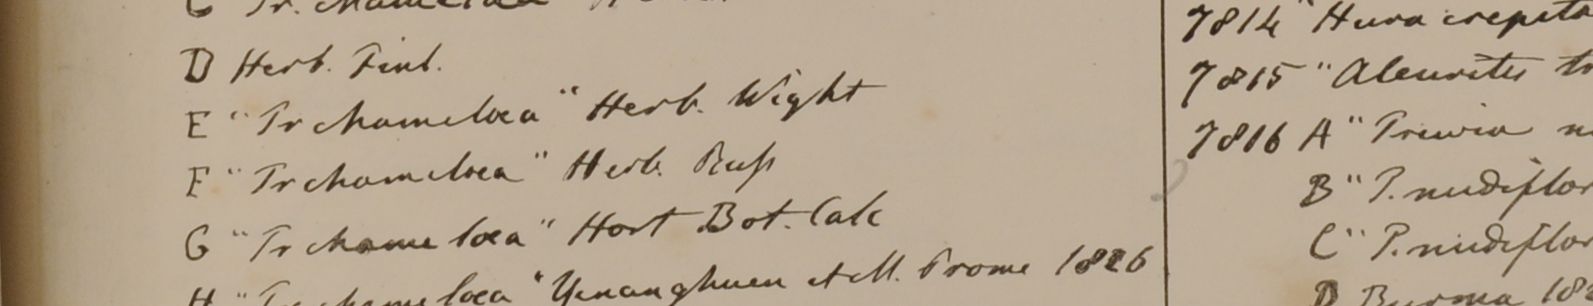 C Tr. chamelaea
D Herb. Finl.
E "Tr chamelaea" Herb. Wight
F "Tr chamelaea" Herb. Russ
G "Tr chamelaea" Hort Bot. Calc
H "Tr chamelaea" Yenanghuen et M. Prome 1826
7814 "Hura crepita
7815 "Aleurites tr
7816 A "Trewia n
B "T. nudiflor
C "T. nudiflor
D Burma 18